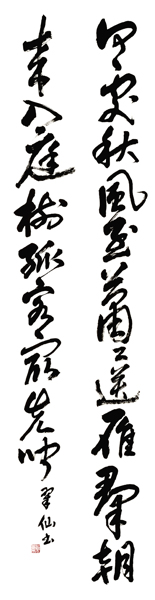 何處秋風至蕭々送雁群朝
来入庭樹孤客最先聞
翠仙書